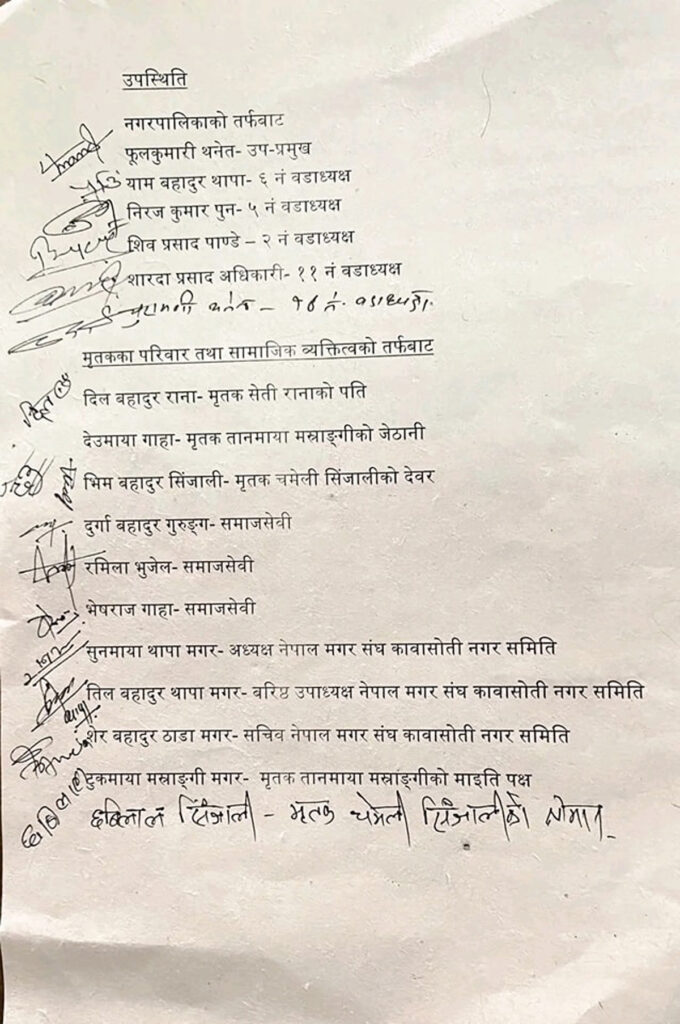 उपस्थिति
नगरपालिकाको तर्फबाट
फूलकुमारी थनेत- उप-प्रमुख
याम बहादुर थापा- ६ नं वडाध्यक्ष
निरज कुमार पुन- ५ नं वडाध्यक्ष
शिव प्रसाद पाण्डे – २ नं वडाध्यक्ष
शारदा प्रसाद अधिकारी- ११ नं वडाध्यक्ष
मृतकका परिवार तथा सामाजिक व्यक्तित्वको तर्फबाट
दिल बहादुर राना- मृतक सेती रानाको पति
देउमाया गाहा- मृतक तानमाया मस्राङ्गीको जेठानी
भिम बहादुर सिंजाली- मृतक चमेली सिंजालीको देवर
दुर्गा बहादुर गुरुङ्ग- समाजसेवी
रमिला भुजेल- समाजसेवी
भेषराज गाहा- समाजसेवी
सुनमाया थापा मगर- अध्यक्ष नेपाल मगर संघ कावासोती नगर समिति
तिल बहादुर थापा मगर- बरिष्ठ उपाध्यक्ष नेपाल मगर संघ कावासोती नगर समिति
शेर बहादुर ठाडा मगर- सचिव नेपाल मगर संघ कावासोती नगर समिति
टुकमाया मस्राङ्गी मगर- मृतक तानमाया मस्राङ्गीको माइति पक्ष
छबिलाल सिंजाली - मृतक चमेली सिंजालीको